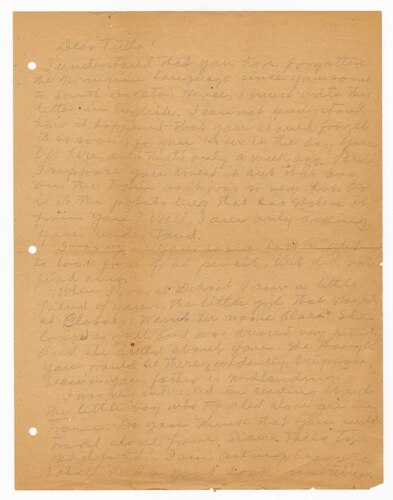 Dear Tulla!
I understand that you have forgotten
the Norwegian language since you came
to South Dakota. Hence, I must write this
letter in English. I can not understand
how it happened that you should forget
it so soon, for you knew it the day you
left here, and that's only a week ago.
I suppose you sweat it out that day
on the train as it was so very hot. Or
is it the potato bug that has stolen it
from you? Well, I am only asking
you
to look for a good pencil, but did not
find any.
When I was at Detroit I saw a little
friend of yours, the little girl that stayed
at Wasn't her name Clara? She
looked so well, and was dressed very
And she asked about you. She thought
you would be there, evidently, I suppose
because your father is
I was very interested in reading about
the little boy who traveled alone on the
trains. Do you think that you could
travel alone from Sioux Falls to
Northfield? I am asking